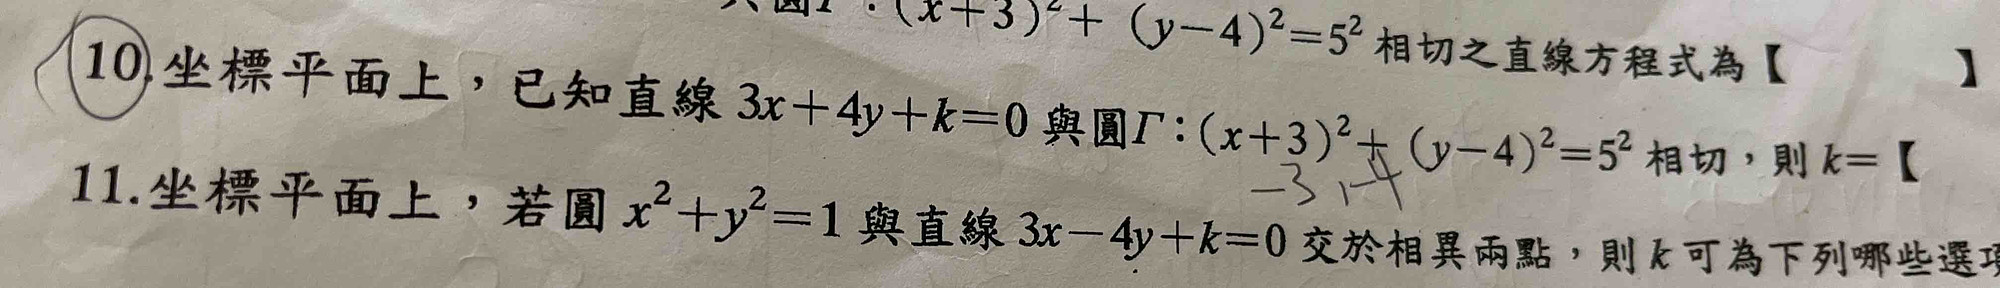 (x+3)²+(y-4)²=5² 相切之直線方程式為【 】
10.坐標平面上，已知直線 3x+4y+k=0 與圓Γ：(x+3)²+(y-4)²=5² 相切，則 k=【
-3, -4
11.坐標平面上，若圓 x²+y²=1 與直線 3x-4y+k=0 交於相異兩點，則 k 可為下列哪些選項